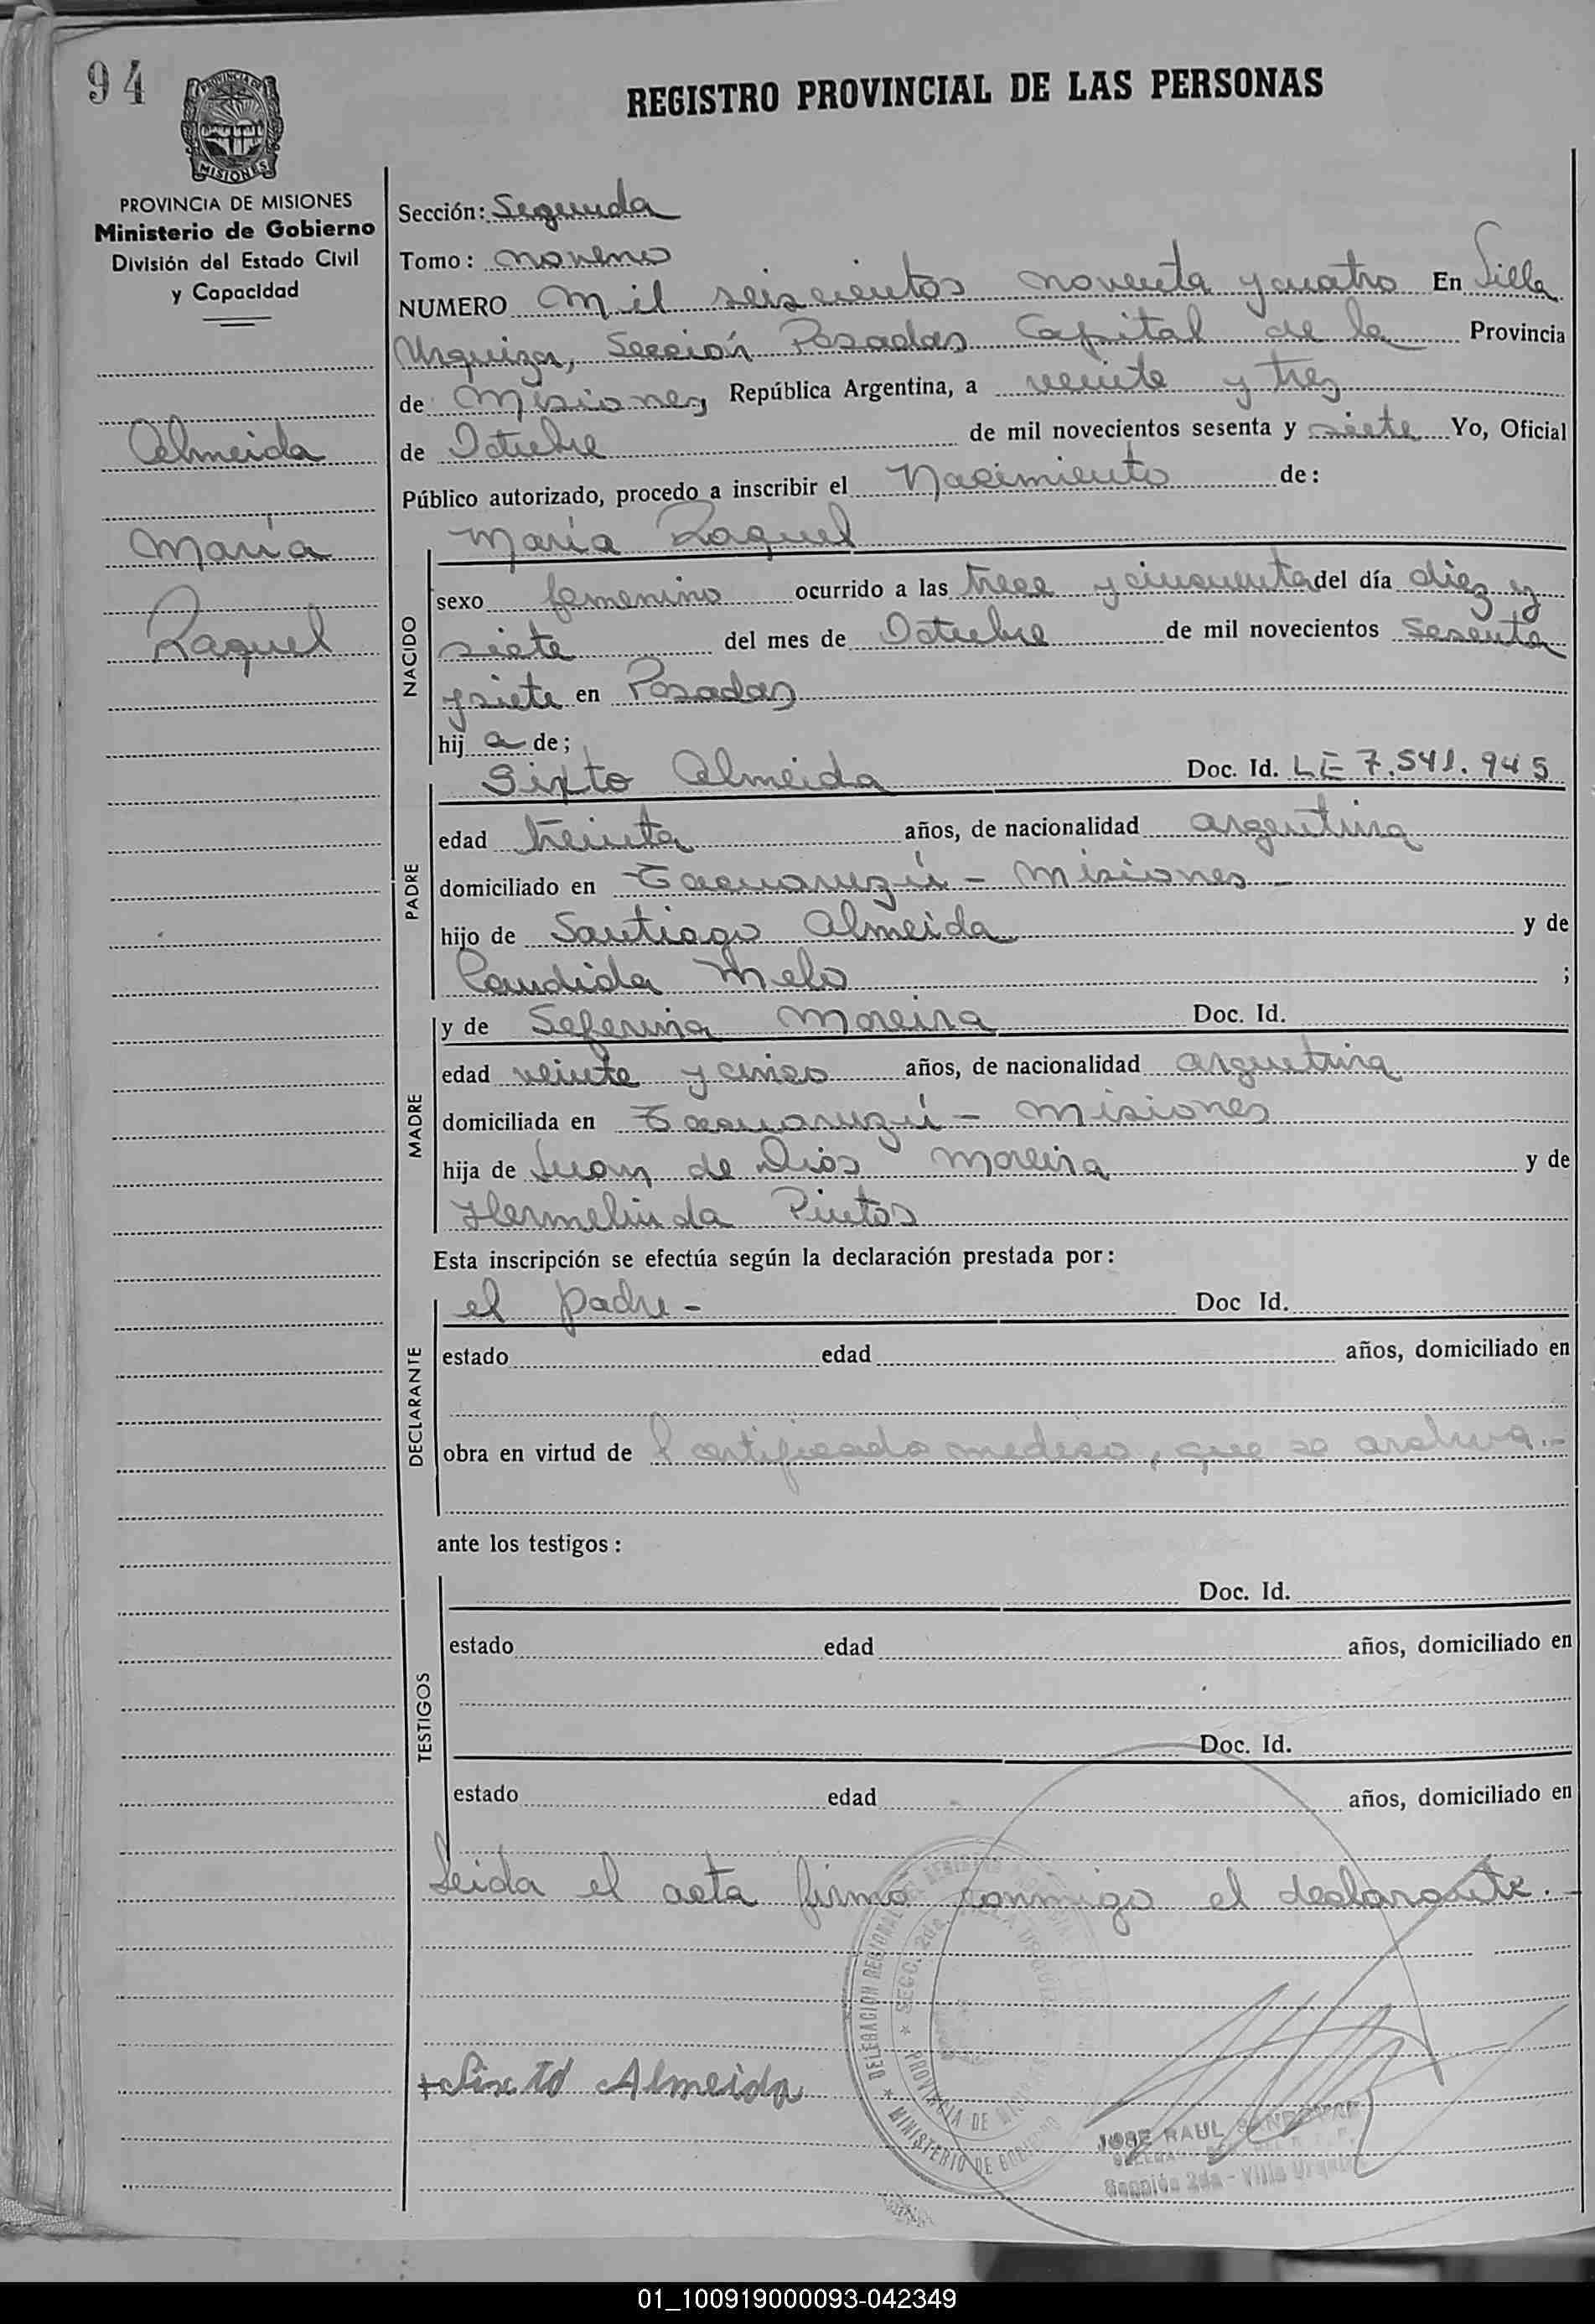 94
REGISTRO PROVINCIAL DE LAS PERSONAS
PROVINCIA DE
MISIONES
PROVINCIA DE MISIONES
Ministerio de Gobierno
División del Estado Civil
y Capacidad
Almeida
María
Raquel
Sección: Segunda
Tomo: noveno
NUMERO mil seiscientos noventa y cuatro En Villa
Urquiza, Sección Posadas Capital de la Provincia
de Misiones, República Argentina, a veinte y tres
de Octubre de mil novecientos sesenta y siete Yo, Oficial
Público autorizado, procedo a inscribir el Nacimiento de:
NACIDO
María Raquel
sexo femenino ocurrido a las trece y cincuenta del día diez y
siete del mes de Octubre de mil novecientos sesenta
y siete en Posadas
hij a de;
PADRE
Sixto Almeida Doc. Id. LE 7.541.945
edad treinta años, de nacionalidad argentina
domiciliado en Tacuaruzú - Misiones -
hijo de Santiago Almeida y de
Candida Melo ;
MADRE
y de Seferina Moreira Doc. Id.
edad veinte y cinco años, de nacionalidad argentina
domiciliada en Tacuaruzú - Misiones
hija de Juan de Dios Moreira y de
Hermelinda Pintos
Esta inscripción se efectúa según la declaración prestada por:
DECLARANTE
el padre - Doc Id.
estado edad años, domiciliado en
obra en virtud de l certificado medico, que se archiva.-
ante los testigos:
TESTIGOS
Doc. Id.
estado edad años, domiciliado en
Doc. Id.
estado edad años, domiciliado en
Leida el acta firma conmigo el declarante.-
DELEGACION REGIONAL
SECC. 2da.
PROVINCIA DE
MINISTERIO DE GOBIERNO
Sixto Almeida
JOSE RAUL
Sección 2da - Villa Urquiza
01_100919000093-042349